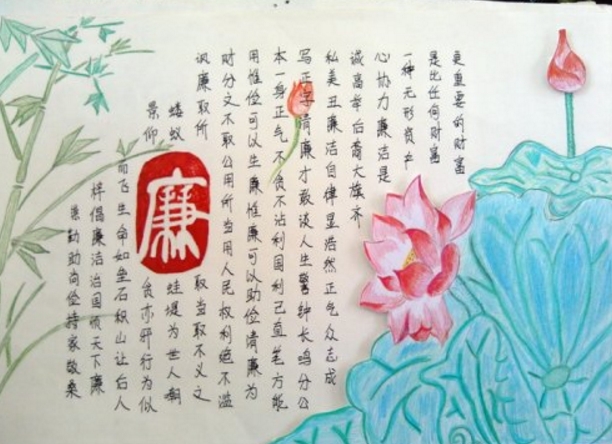 崇勤助尚俭持家敬桑
梓倡廉洁治国顺天下廉
而飞生命如垒石积山让后人
景仰
廉
贪亦邪行为似
蝼蚁
蛙堤为世人嘲
讽廉取所
取当取不义之
财分文不取公用所当用人民权利绝不滥
用惟俭可以生廉惟廉可以助俭清廉为
本一身正气不贪不沾利国利己直笔方能
写正字清廉才敢谈人生警钟长鸣分公
私美丑廉洁自律显浩然正气众志成
诚高举后大旗齐
心协力廉洁是
一种无形资产
是比任何财富
更重要的财富